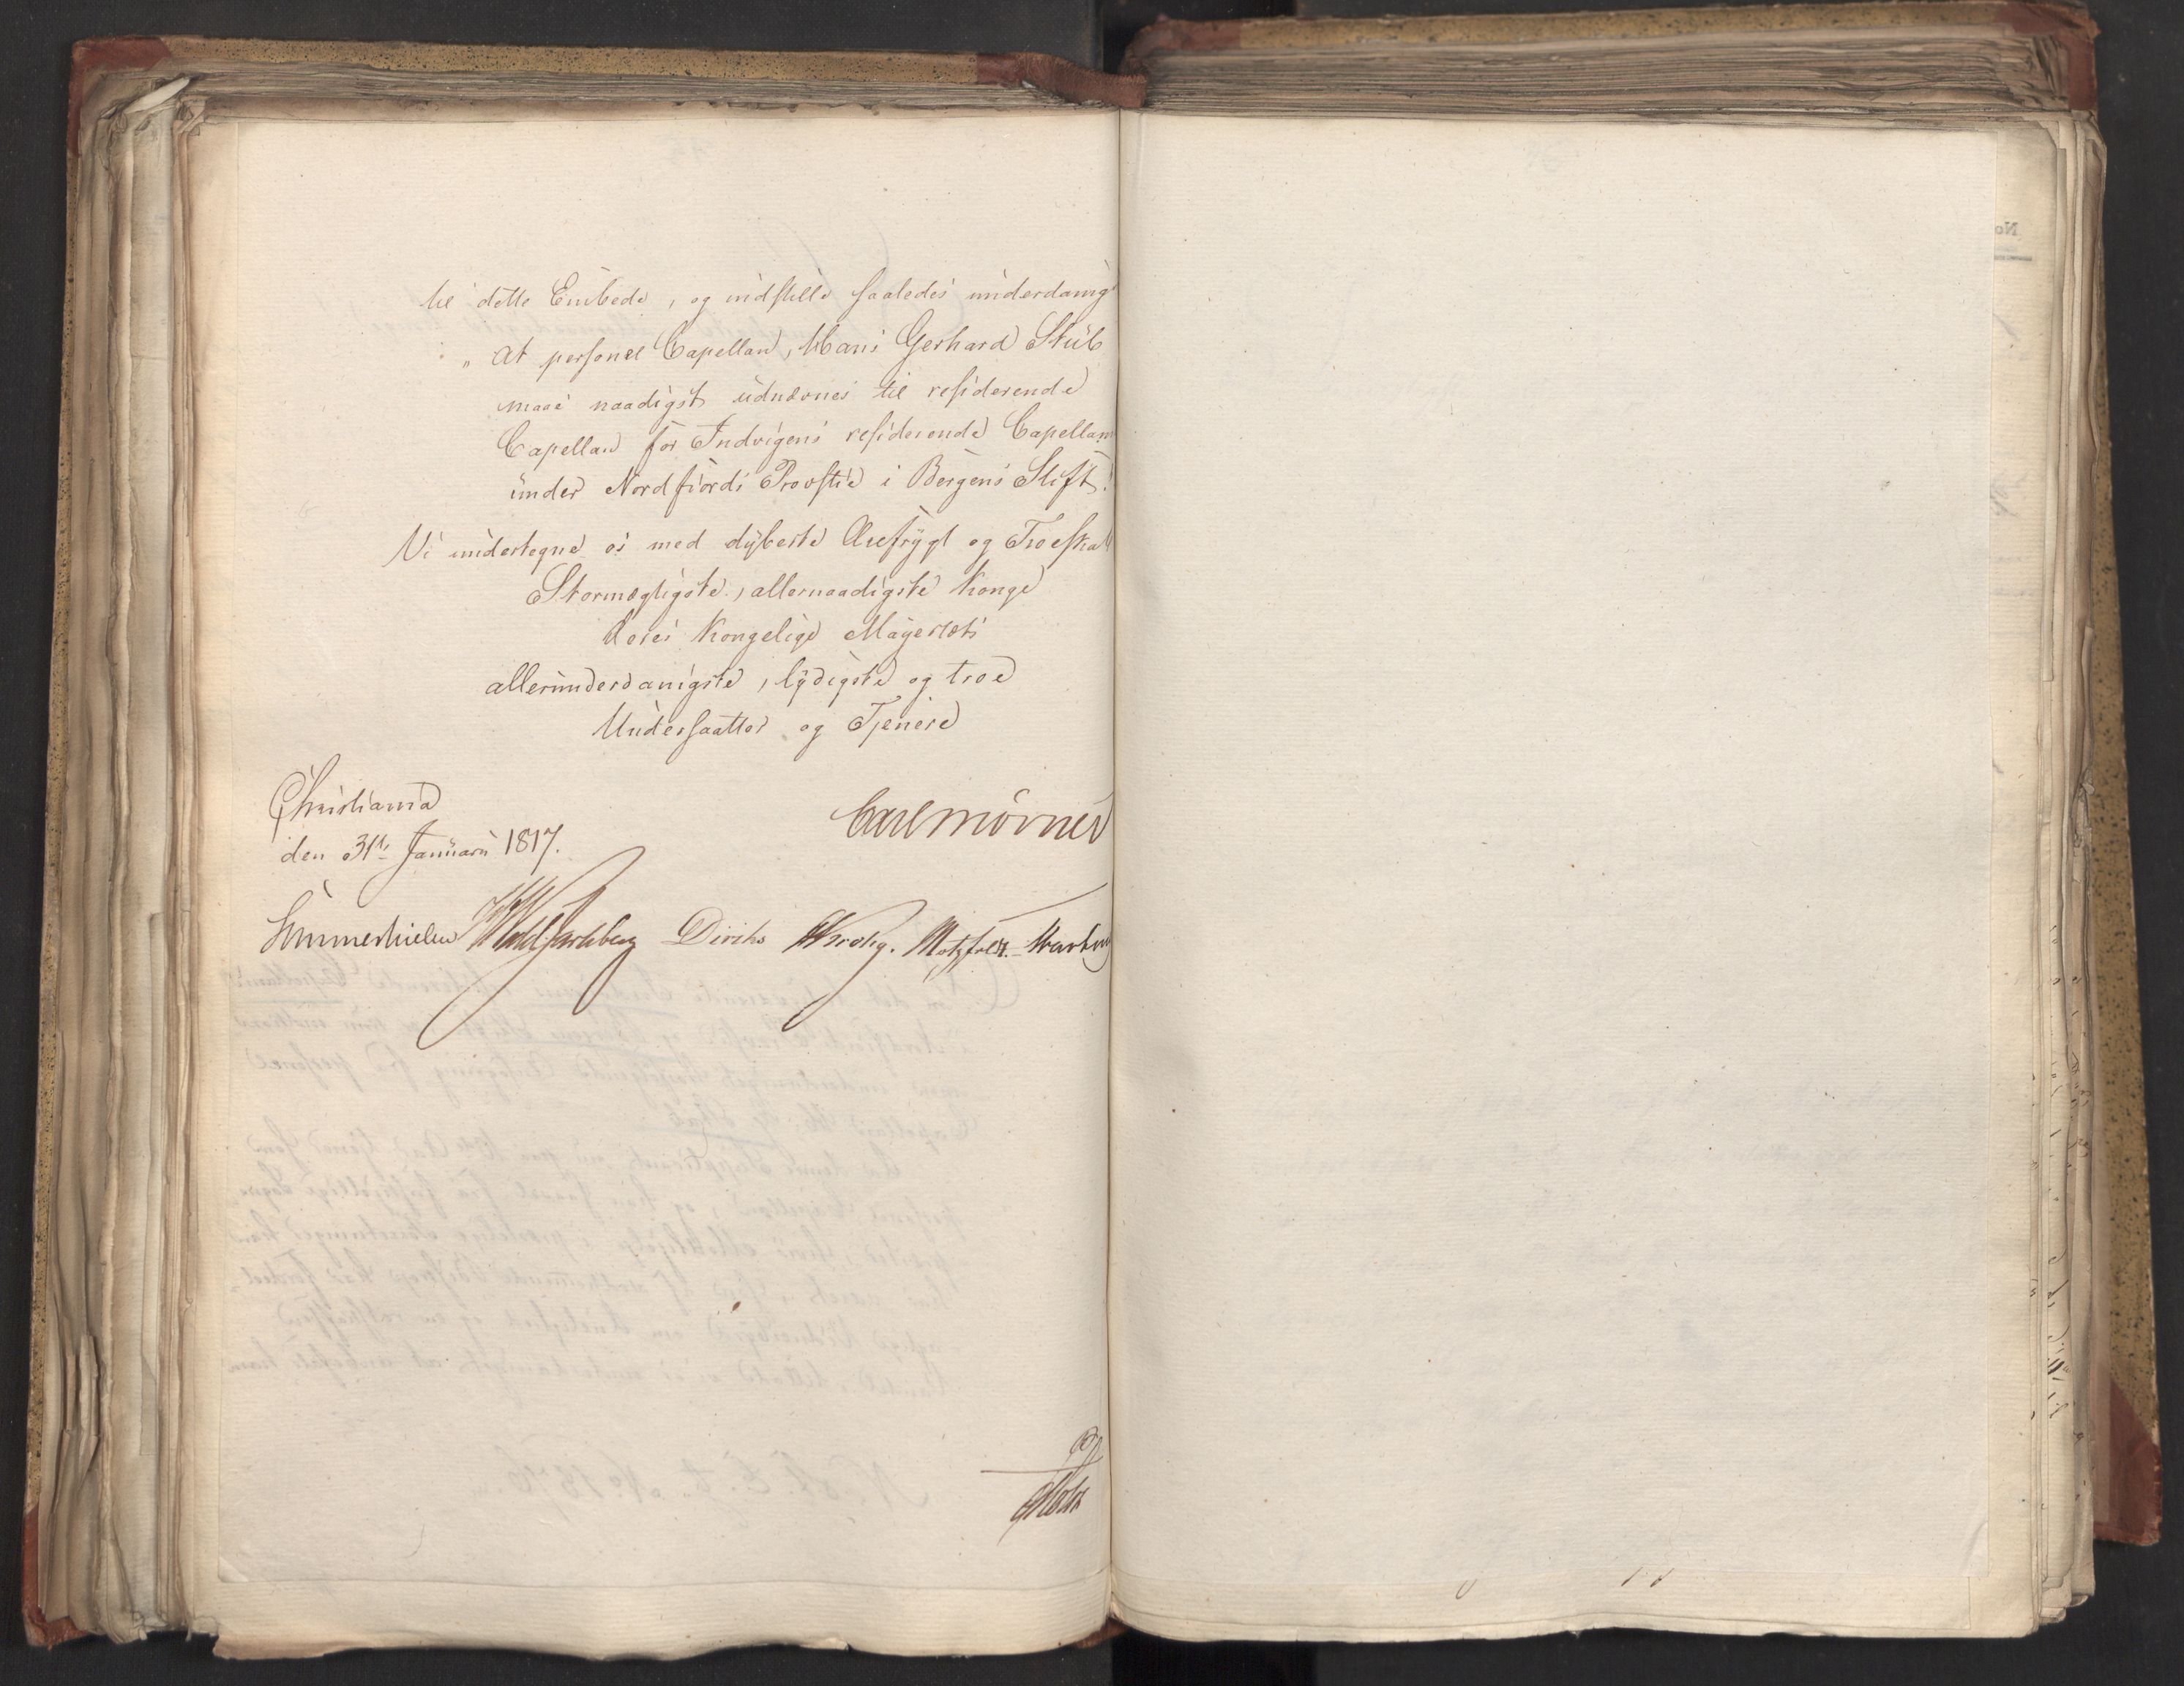 til dette Embede, og indstille saaledes underdanig
„ At personel Capellan, Hans Gerhard Stüb
maae naadigst udnævnes til residerende
Capellan for Indvigens residerende Capellani
under Nordfiords Provstie i Bergens Stift.
Vi undertegne os med dybeste Ærefrygt og Troeska
Stormægtigste, allernaadigste Konge
Deres Kongelige Mayestæts
allerunderdanigste, lydigste og troe
Undersaatter og Tjenere
Christiania
den 31te Januari 1817.
Carl Mörner
Sommerhielm Diriks Krohg. Motzfeldt.
Holst